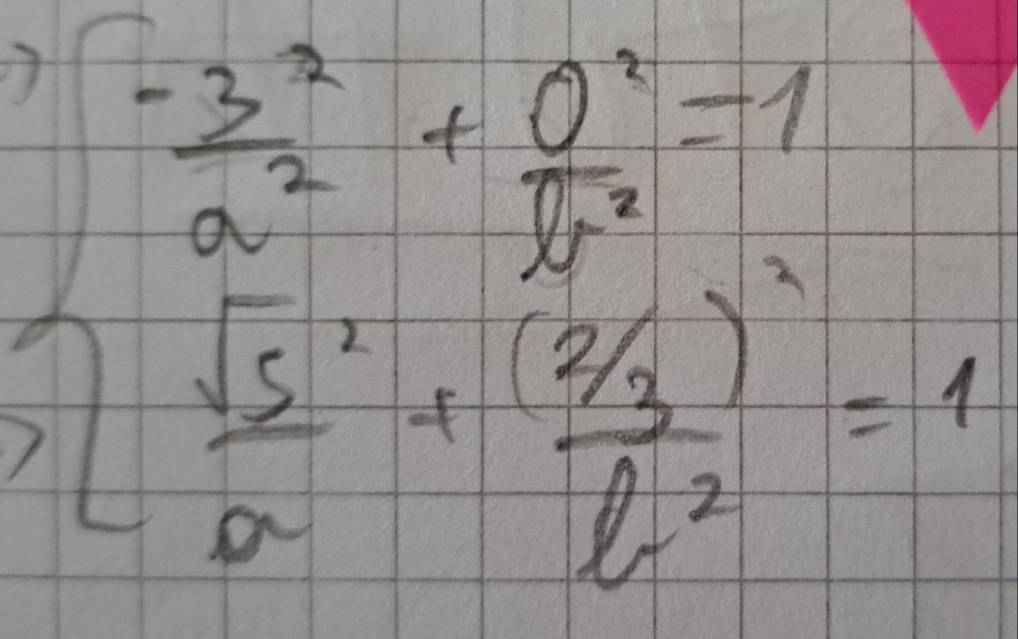 -3²/a² + 0²/b² = 1
√5²/a + (2/3)²/b² = 1